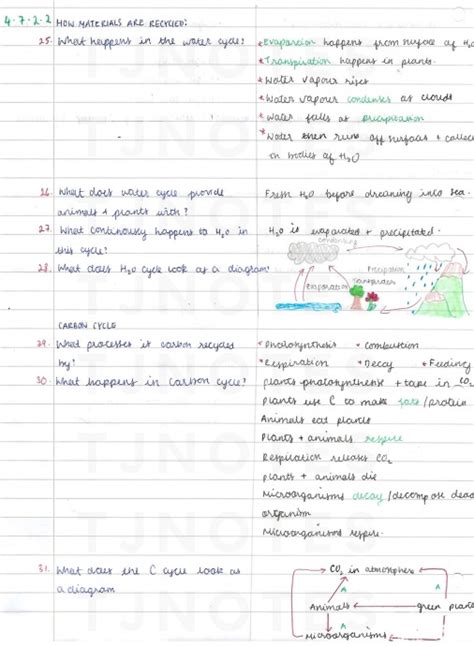 4.7.2.2 HOW MATERIALS ARE RECYCLED:
25. What happens in the water cycle?
* Evaporation happens from surface of H₂O
* Transpiration happens in plants.
* Water vapour rises
* Water vapour condenses as clouds
* Water falls as precipitation
* Water then runs off surfaces + collec
in bodies of H₂O
26. What does water cycle provide
animals + plants with?
Fresh H₂O before draining into sea.
27. What continously happens to H₂O in
this cycle?
H₂O is evaporated + precipitated.
28. What does H₂O cycle look as a diagram?
condensing
precipitation
evaporation
transpiration
CARBON CYCLE
29. What processes is carbon recycled
by?
* Photosynthesis * Combustion
* Respiration * Decay * Feeding
30. What happens in carbon cycle?
Plants photosynthesise + take in CO₂
Plants use C to make fats/protein
Animals eat plants
Plants + animals respire
Respiration releases CO₂
Plants + animals die
Microorganisms decay/decompose dead
organism
Microorganisms respire.
31. What does the C cycle look as
a diagram
CO₂ in atmosphere
Animals
green plant
Microorganisms
TJNOTES